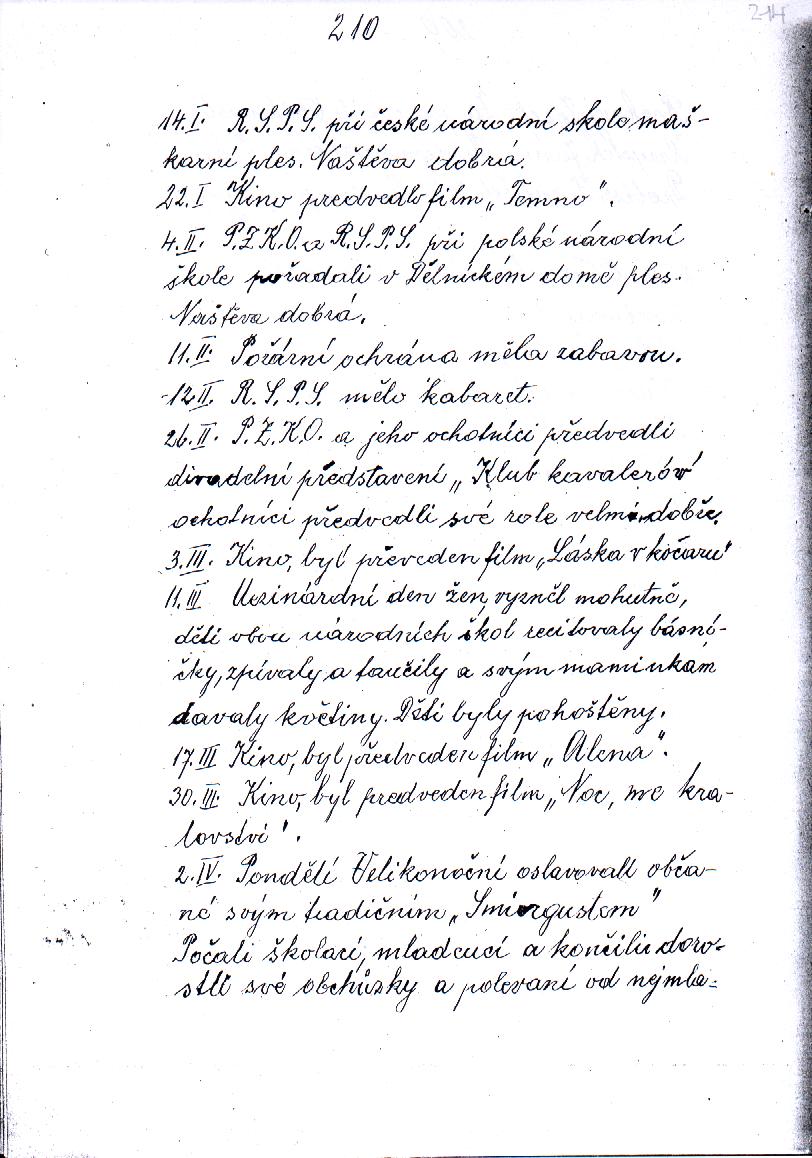 210
214
14.I. R.S.P.S. při české národní škole maš-
karní ples. Naštěva dobrá.
22.I Kino předvedlo film „Temno".
4.II. P.Z.K.O. a R.S.P.S. při polské národní
škole pořadali v Dělnickém domě ples.
Naštěva dobrá.
11.II. Požární ochrána měla zabavou.
-12II. R.S.P.S. mělo kabaret.
26.II. P.Z.K.O. a jeho ochotníci předvedli
divadelní představení „Klub kavalerów"
ochotníci předvedli své role velmi dobře.
3.III. Kino, byl převeden film „Láska v kočaru"
11.III Mezinárdní den žen, vyzněl mohutně,
děti obou národních škol recitovaly básni-
čky, zpívaly a tančily a svým maminkam
davaly květiny. Děti byly pohoštěny.
17.III Kino, byl předveden film „Alena".
30.III. Kino, byl předveden film „Noc, me kra-
lovstvi".
2.IV. Ponděli Velikonoční oslavovali obča-
né svým tradičním „Smiergustem"
Počali školaci, mladenci a končili doro-
stlí své obchůzky a polevaní od nejmla-